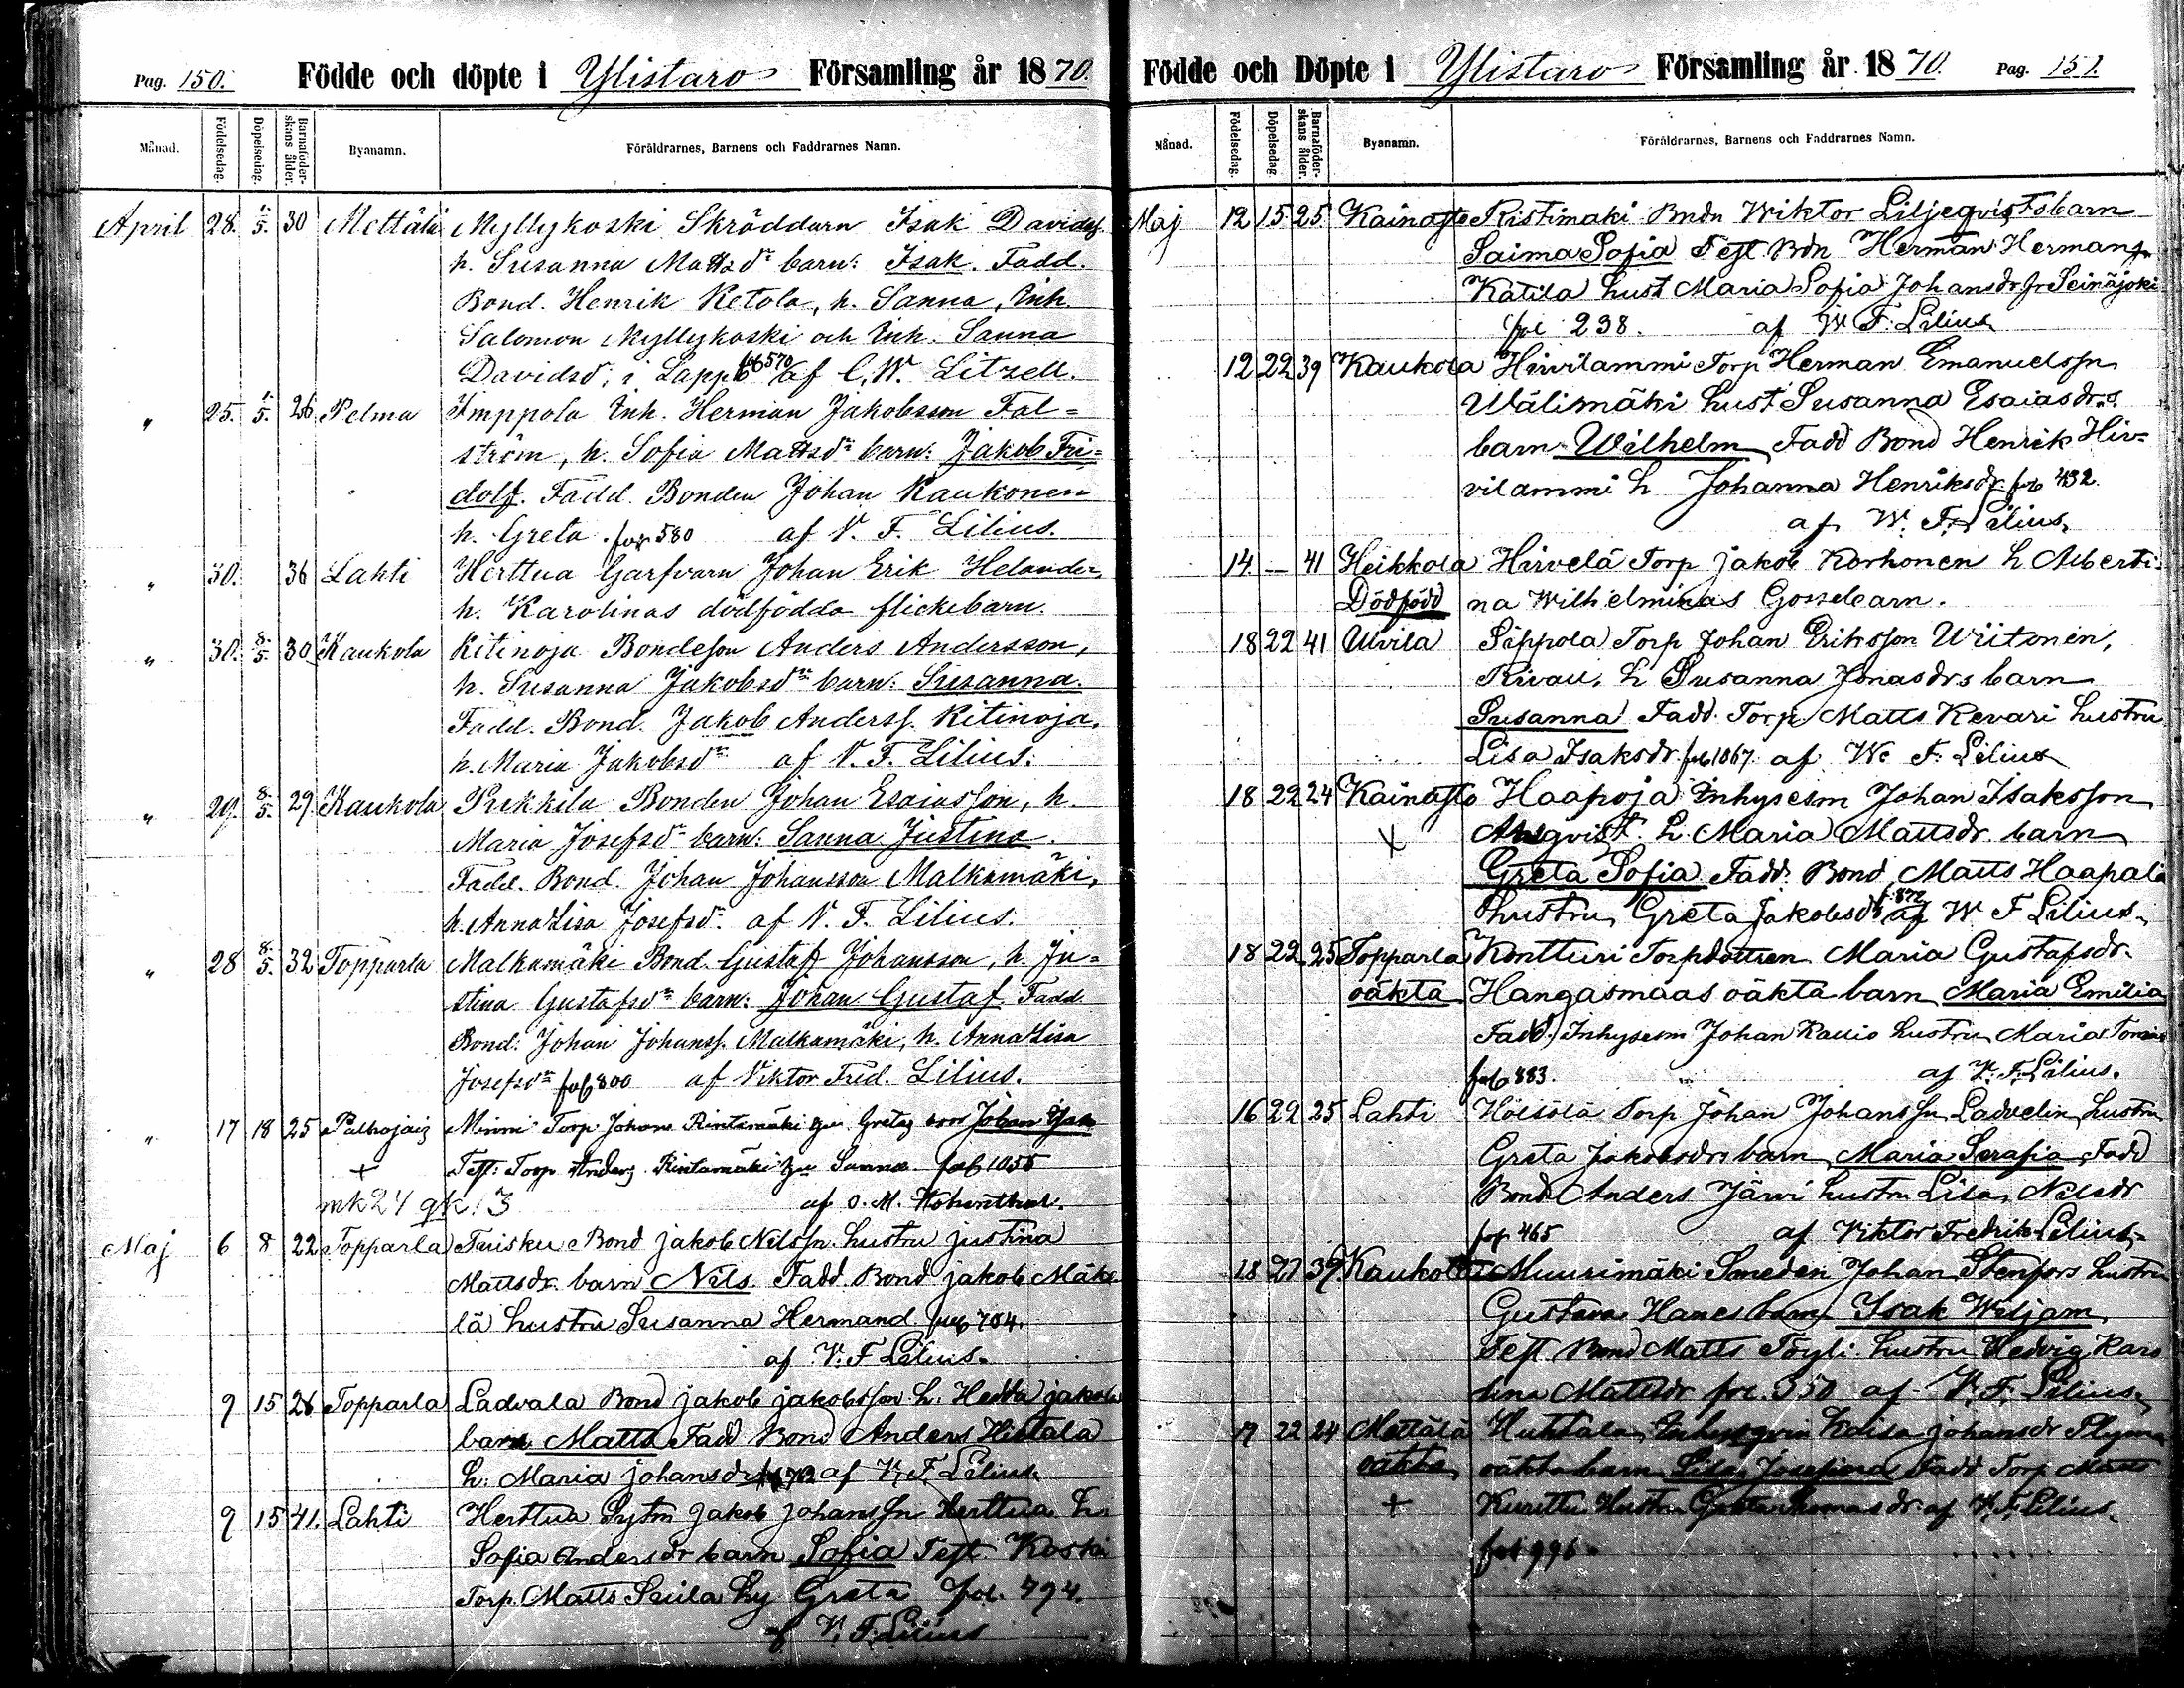 Pag. 150. Födde och döpte i Ylistaro Församling år 1870.
Månad. Födelsedag. Döpelsedag. Barnaföderskans ålder. Byanamn. Föräldrarnes, Barnens och Faddrarnes Namn.
April 28. 1/5. 30 Mettälä Myllykoski Skräddarn Isak Davidss.
h. Susanna Mattsdr barn: Isak. Fadd.
Bond. Henrik Ketola, h. Sanna, Inh.
Salomon Myllykoski och Inh. Sanna
Davidsd. i Lappo 570 af C. W. Litzell.
" 25. 1/5. 26 Pelma Imppola Inh. Herman Jakobsson Fal=
ström, h. Sofia Mattsdr barn: Jakob Fri=
dolf. Fadd. Bonden Johan Kaukonen
h. Greta. fol 580 af V. F. Lilius.
" 30. 36 Lahti Herttua Garfvarn Johan Erik Helander,
h. Karolinas dödfödda flickebarn.
" 30. 8/5. 30 Kaukola Kitinoja Bondeson Anders Andersson,
h. Susanna Jakobsdr barn: Susanna.
Fadd. Bond. Jakob Anderss. Kitinoja,
h. Maria Jakobsdr af V. F. Lilius.
" 29. 8/5. 29. Kaukola Pukkila Bonden Johan Esaiasson, h.
Maria Josefsdr barn: Sanna Justina.
Fadd. Bond. Johan Johansson Malkamäki,
h. Anna Lisa Josefsdr af V. F. Lilius.
" 28 8/5. 32 Topparla Malkamäki Bond. Gustaf Johansson, h. Ju=
stina Gustafsdr barn: Johan Gustaf Fadd.
Bond. Johan Johanss. Malkamäki, h. Anna Lisa
Josefsdr fol 800 af Viktor Fred. Lilius.
" 17 18 25 Minni Torp Johan Rintamäki Gretas Johan Isak
+ Test: Torp Anders Rintamäki Sanna fol 1055
mk 24 13 af O. M.
Maj 6 8 22 Topparla Tuisku Bond jakob Nilsson hustru justina
Mattsdr. barn Nils. Fadd. Bond jakob Mäke
lä hustru Susanna Hermand. fol 704.
af V. F Lilius.
9 15 26 Topparla Ladvala Bond jakob jakobsson h: Hedda jakobs
barn Matts Fadd Bond Anders Hietala
h: Maria johansdr af V, F, Lilius.
9 15 41. Lahti Herttua Sytn jakob johansson Herttua h
Sofia Andersdr barn Sofia Test. Koski
Torp. Matts Greta fol. 794.
af V. F. Lilius
Födde och Döpte i Ylistaro Församling år 1870. Pag. 151.
Månad. Födelsedag. Döpelsedag Barnaföderskans ålder. Byanamn. Föräldrarnes, Barnens och Faddrarnes Namn.
Maj 12 15 25 Kainasto Ristimäki Bndn Wiktor Liljeqvists barn
Saima Sofia Test. Bdn Herman Hermansn
Katila hust Maria Sofia Johansdr fr Seinäjoki
fol 238. af W. F. Lilius
12 22 39 Kaukola Hirvilammi Torp Herman Emanuelssn
Wälimäki hust Susanna Esaiasdrs.
barn Wilhelm Fadd Bond Henrik Hir=
vilammi h Johanna Henriksdr. fol 432.
af W. F. Lilius.
14. — 41 Heikkola Hirvelä Torp jakob Korhonen h Alberti-
Dödfödd na Wilhelminas Gossebarn.
18 22 41 Ulvila Sippola Torp Johan Eriksson Wiitonen,
h Susanna Jonasdrs barn
Susanna Fadd. Torp Matts Kevari hustru
Lisa Isaksdr. fol 1067. af W. F. Lilius
18 22 24 Kainasto Haapoja Inhysesm Johan Isaksson
+ Ahlqvist. h. Maria Mattsdr. barn
Greta Sofia Fadd. Bond Matts Haapala
hustru Greta Jakobsdr f. 872 af W F Lilius.
18 22 25 Topparla Kontturi Torpdottren Maria Gustafsdr.
oäkta Hangasmaas oäkta barn Maria Emilia
Fadd. Inhysesm Johan Kallio hustru Maria
fol 883. af V. F. Lilius.
16 22 25 Lahti Torp Johan Johansson hustru
Greta Jakobsdrs barn Maria Serafia Fadd
Bond Anders Järvi hustru Lisa Nilsdr
fol 465 af Viktor Fredrik Lilius.
18 27 39. Kaukola Muurimäki Smeden Johan Stenfors hustru
Gustava Hanes barn Isak Wiljam
Test Bond Matts Töyli hustru Hedvig Karo
lina Mattsdr fol. 350 af V. F. Lilius
17 22 24 Mettälä Huhtala Inhysqvin Kaisa johansdr
oäkta oäkta barn Lisa Josefina Fadd Torp Matts
+ Kurittu Hustru Greta Thomasdr. af V. F. Lilius.
fol 996